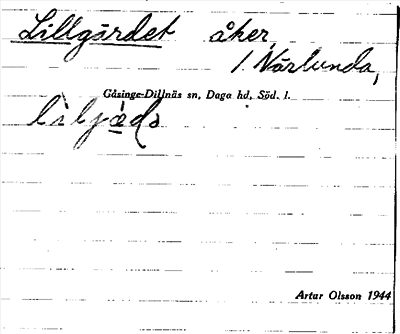 Lillgärdet åker,
1 Närlunda,
Gåsinge-Dillnäs sn, Daga hd, Söd. l.
Artur Olsson 1944